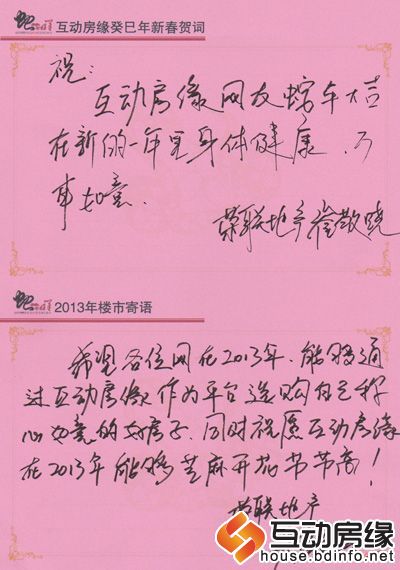 互动房缘癸巳年新春贺词
祝:
互动房缘网友蛇年大吉
在新的一年里身体健康、万
事如意.
荣联地产 敬晓
2013年楼市寄语
希望各位网在2013年、能够通
过互动房缘作为平台选购自己称
心如意的好房子、同时祝愿互动房缘
在2013年能够芝麻开花节节高!
荣联地产
互动房缘
house.bdinfo.net